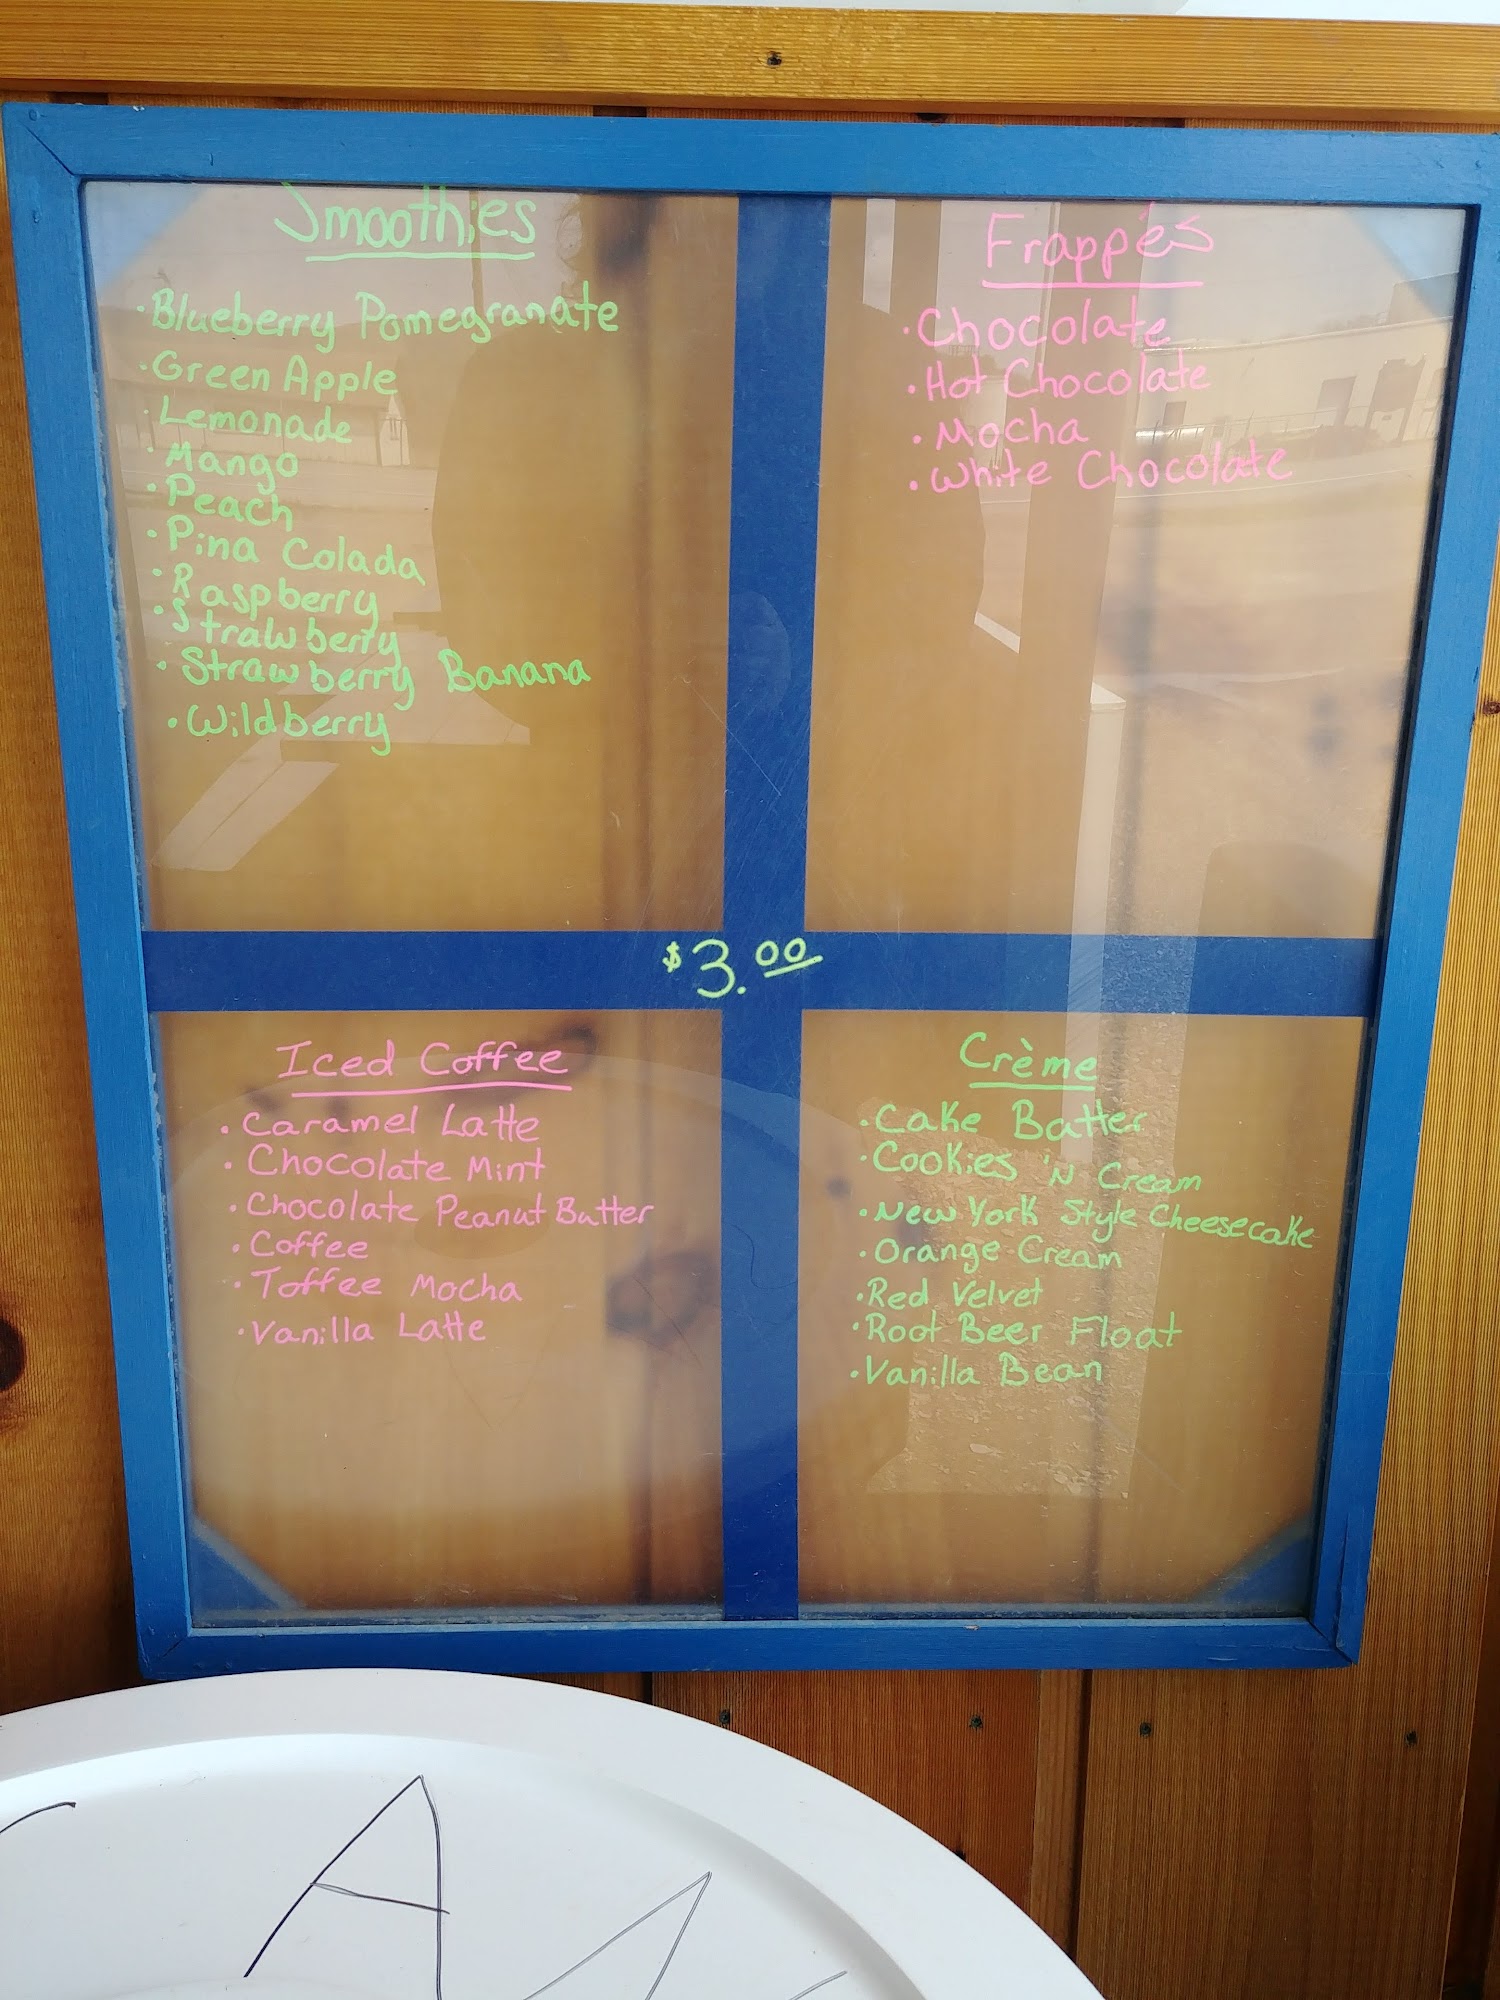 Smoothies
• Blueberry Pomegranate
• Green Apple
• Lemonade
• Mango
• Peach
• Pina Colada
• Raspberry
• Strawberry
• Strawberry Banana
• Wildberry
Frappés
• Chocolate
• Hot Chocolate
• Mocha
• White Chocolate
$3.00
Iced Coffee
• Caramel Latte
• Chocolate Mint
• Chocolate Peanut Butter
• Coffee
• Toffee Mocha
• Vanilla Latte
Crème
• Cake Batter
• Cookies 'N Cream
• New York Style Cheesecake
• Orange Cream
• Red Velvet
• Root Beer Float
• Vanilla Bean
A